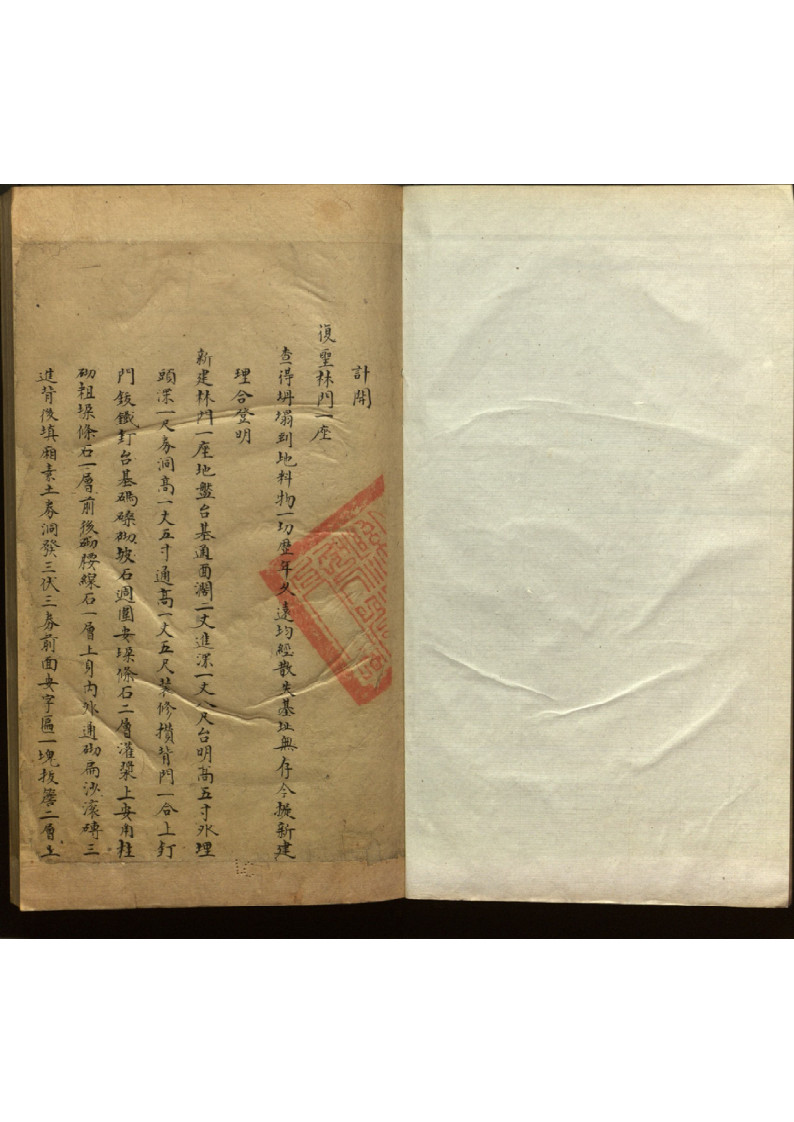 計開
復聖林門一座
查得坍塌到地料物一切歷年久遠均經散失基址無存今擬新建
理合登明
新建林門一座地盤台基通面濶二丈進深一丈八尺台明高五寸外埋
頭深一尺券洞高一丈五寸通高一丈五尺裝修攅背門一合上釘
門鈸鐵釘台基碼磉砌坡石週圍安垜條石二層灌漿上安角柱
砌粗垜條石一層前後砌腰線石一層上身內外通砌扁沙滾磚三
進背後填廂素土券洞發三伏三券前面安字匾一塊拔簷二層上